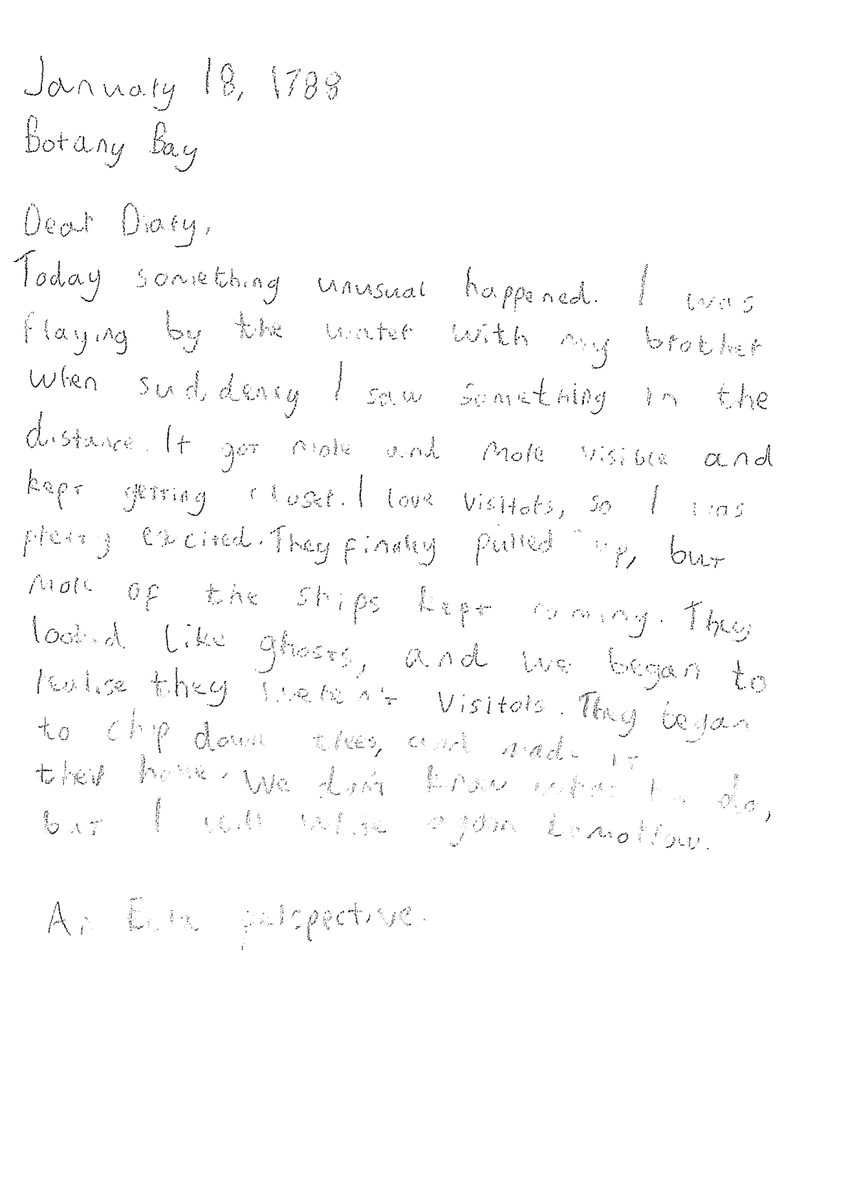 January 18, 1788
Botany Bay
Dear Diary,
Today something unusual happened. I was
Playing by the water with my brother
when suddenly I saw something in the
distance. It got more and more visible and
kept getting closer. I love visitors, so I was
pretty excited. They finally pulled up, but
more of the ships kept coming. They
looked like ghosts, and we began to
realise they weren't visitors. They began
to chip down trees, and made it
their home. We don't know what to do,
but I will write again tomorrow.
An Eora perspective.